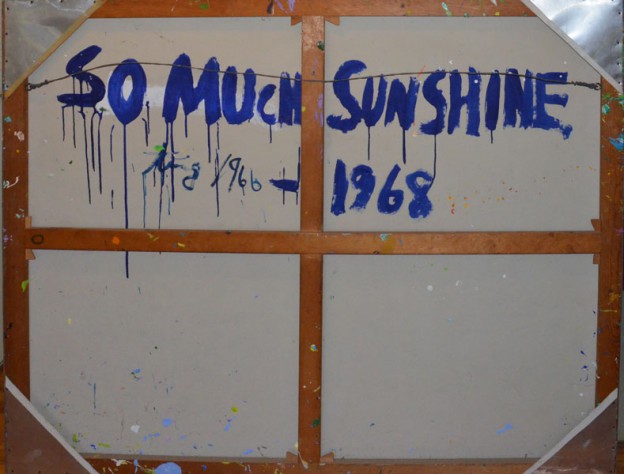 SO MUCH SUNSHINE
Aug 1966 - 1968